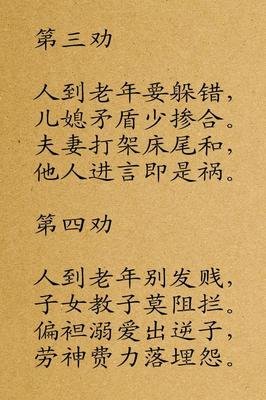 第三劝
人到老年要躲错，
儿媳矛盾少掺合。
夫妻打架床尾和，
他人进言即是祸。
第四劝
人到老年别发贱，
子女教子莫阻拦。
偏袒溺爱出逆子，
劳神费力落埋怨。